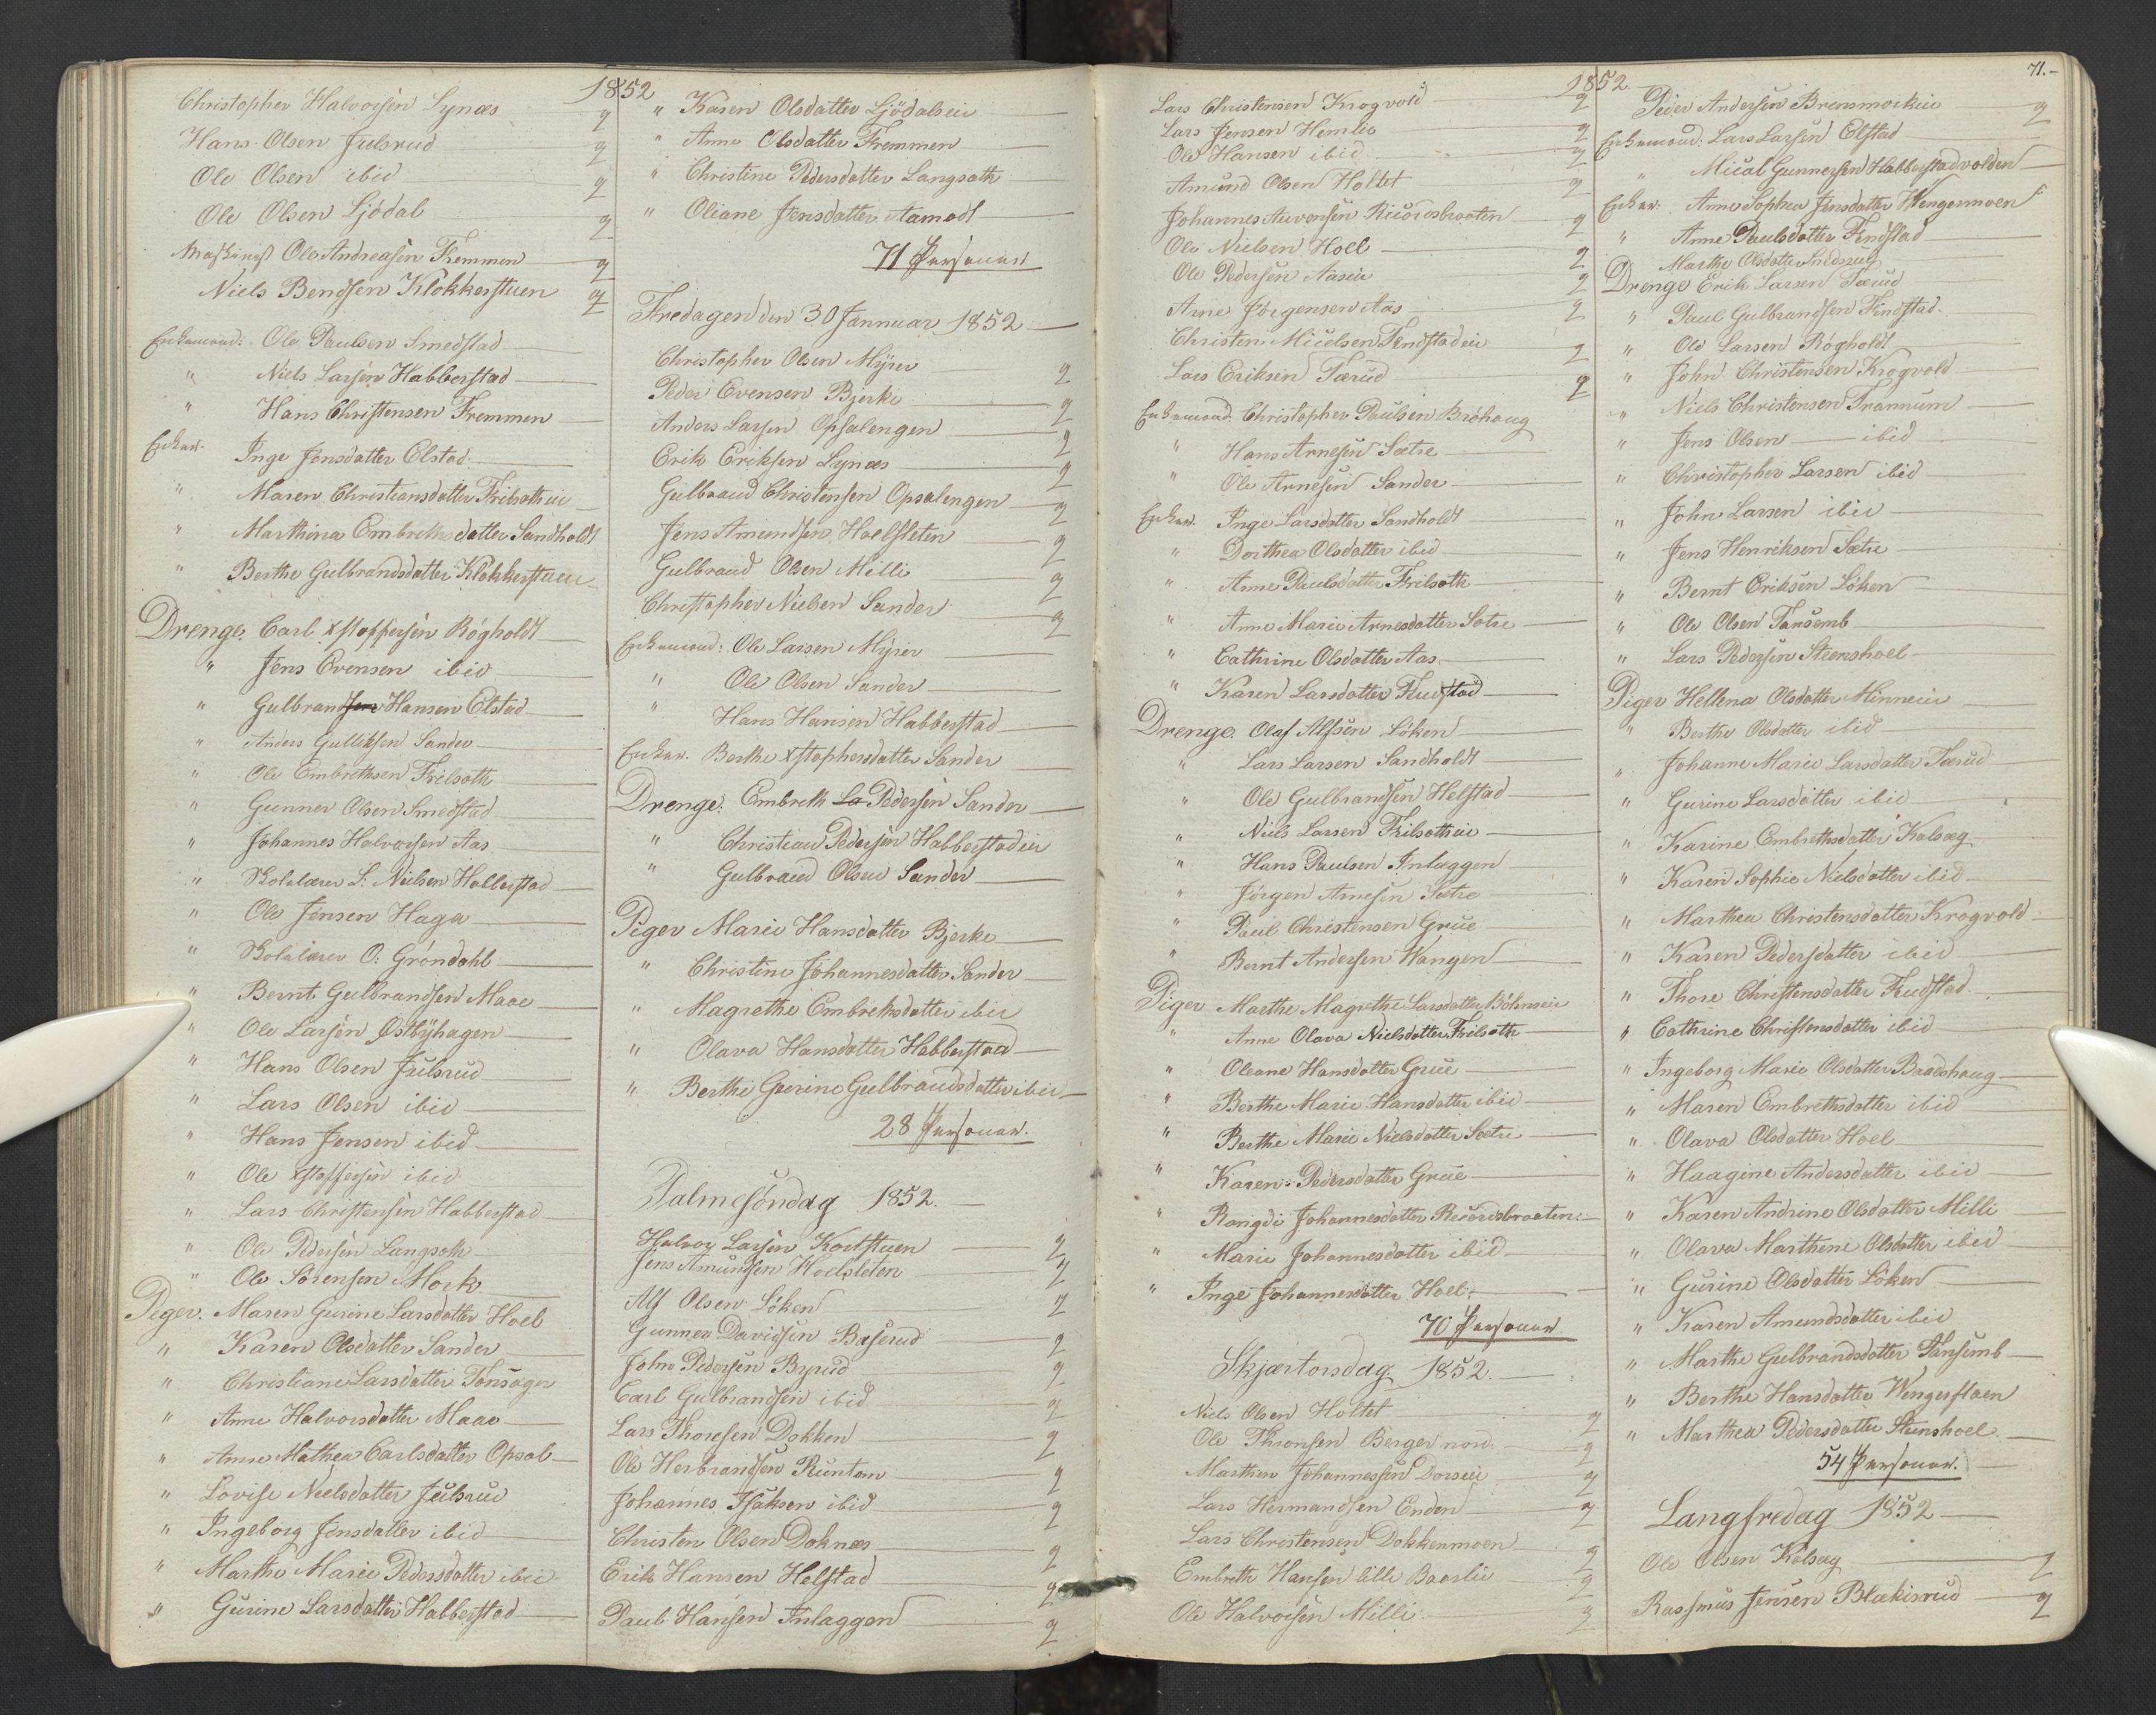 1852
Christopher Halvorsen Lynæs q
Hans Olsen Julsrud q
Ole Olsen ibid q
Ole Olsen Ljödal q
Maskinist Ole Andreasen Fremmen q
Niels Bendsen Klokkerstuen q
Enkemand: Ole Paulsen Smedstad
" Niels Larsen Habberstad
" Hans Christensen Fremmen
Enker. Inge Jensdatter Elstad
" Maren Christiansdatter Frilsætheie
" Marthina Embrethsdatter Sandholdt
" Berthe Gulbrandsdatter Klokkerstuen
Drenge. Carl Xstoffersen Rögholdt
" Jens Evensen ibid
" Gulbrand Hansen Elstad
" Anders Gulleksen Sander
" Ole Embrethsen Frilsæth
" Gunner Olsen Smedstad
" Johannes Halvorsen Aas
" Skolelærer L: Nielsen Habberstad
" Ole Jensen Haga
" Skolelærer O: Gröndahl
" Bernt Gulbrandsen Maae
" Ole Larsen Østbÿhagen
" Hans Olsen Julsrud
" Lars Olsen ibid
" Hans Jensen ibid
" Ole Xstoffersen ibid
" Lars Christensen Habberstad
" Ole Pedersen Langsæth
" Ole Sörensen Mork
Piger. Maren Gurine Larsdatter Hoel
" Karen Olsdatter Sander
" Christiane Larsdatter Tonsager
" Anne Halvorsdatter Maae
" Anne Mathea Carlsdatter Opsal
" Lovise Nielsdatter Julsrud
" Ingeborg Jensdatter ibid
" Marthe Marie Pedersdatter ibid
" Gurine Larsdatter Habberstad
" Karen Olsdatter Ljödalseie
" Anne Olsdatter Fremmen
" Christine Pedersdatter Langsæth
" Oliane Jensdatter Aamodt
71 Personer
Fredagen den 30 Jannuar 1852
Christopher Olsen Mÿrer q
Peder Evensen Bjerke q
Anders Larsen Opsalengen q
Erik Eriksen Lynæs q
Gulbrand Christensen Opsalengen q
Jens Amundsen Hoelsleten q
Gulbrand Olsen Milli q
Christopher Nielsen Sander q
Enkemand: Ole Larsen Mÿrer
" Ole Olsen Sander
" Hans Hansen Habberstad
Enker. Berthe Xstophersdatter Sander
Drenge. Embreth La Pedersen Sander
" Christian Pedersen Habberstadeie
" Gulbrand Olsen Sander
Piger Marie Hansdatter Bjerke
" Christine Johannesdatter Sander
" Magrethe Embrethsdatter ibid
" Olava Hansdatter Habberstad
" Berthe Gurine Gulbrandsdatter ibid
28 Personer.
Palmesöndag 1852.
Halvor Larsen Kortstuen q
Jens Amundsen Hoelsleten q
Alf Olsen Löken q
Gunner Davidsen Baserud q
John Pedersen Byrud q
Carl Gulbrandsen ibid q
Lars Thoresen Dokken q
Ole Herbrandsen Runtom q
Johannes Isaksen ibid q
Christen Olsen Doknæs q
Erik Hansen Helstad q
Paul Hansen Inlaggen q
1852.
71.-
Lars Christensen Krogvold q
Lars Jensen Hemlie q
Ole Hansen ibid q
Amund Olsen Holtet q
Johannes Auvensen Ricordsbraaten q
Ole Nielsen Hoel q
Ole Pedersen Aaseie q
Arne Jörgensen Aas q
Christen Micelsen Findstadeie q
Lars Eriksen Tærud q
Enkemand. Christopher Paulsen Bröhaug
" Hans Arnesen Sætre
" Ole Arnesen Sander
Enker. Inge Larsdatter Sandholdt
" Dorthea Olsdatter ibid
" Anne Paulsdatter Frilsæth
" Anne Marie Arnesdatter Sætre
" Cathrine Olsdatter Aas
" Karen Larsdatter Frudstad
Drenge. Olaf Alfsen Löken
" Lars Larsen Sandholdt
" Ole Gulbrandsen Helstad
" Niels Larsen Frilsætheie
" Hans Paulsen Inlæggen
" Jörgen Arnesen Sætre
" Paul Christensen Grue
" Bernt Andersen Wangen
Piger Marthe Magrethe Larsdatter
" Anne Olava Nielsdatter Frilsæth
" Oleane Hansdatter Grue
" Berthe Marie Hansdatter ibid
" Berthe Marie Nielsdatter Sætre
" Karen Pedersdatter Grue
" Rangdi Johannesdatter Ricordsbraaten
" Marie Johannesdatter ibid
" Inge Johannesdatter Hoel
70 Personer
Skjærtorsdag 1852.
Niels Olsen Holtet q
Ole Thronsen Berger nord. q
Marthin Johannessen Dorseie q
Lars Hermandsen Enden q
Lars Christensen Dokkenmoen q
Embreth Hansen lille Baaslie q
Ole Halvorsen Milli q
Peder Andersen Brensmorkeie q
Enkemand: Lars Larsen Elstad
" Mical Gunnersen Habberstadvolden
Enker. Anne Sophea Jensdatter Wengermoen
" Anne Paulsdatter Findstad
Marthe Olsdatter
Drenge Erik Larsen Tærud
" Paul Gulbrandsen Findstad.
" Ole Larsen Rögholdt
" John Christensen Krogvold
" Niels Christensen Trannum
" Jens Olsen ibid
" Christopher Larsen ibid
" John Larsen ibid
" Jens Henriksen Sætre
" Bernt Eriksen Löken
" Ole Olsen Tansemb
" Lars Pedersen Steenshoel
Piger Hellena Olsdatter Minneeie
" Berthe Olsdatter ibid
" Johanne Marie Larsdatter Tærud
" Gurine Larsdatter ibid
" Karine Embrethsdatter Kalsæg
" Karen Sophie Nielsdatter ibid
" Marthea Christensdatter Krogvold
" Karen Pedersdatter ibid
" Thore Christensdatter Frudstad
" Cathrine Christensdatter ibid
" Ingeborg Marie Olsdatter Baadshaug
" Maren Embrethsdatter ibid
" Olava Olsdatter Hoel
" Haagine Andersdatter ibid
" Karen Andrine Olsdatter Milli
" Olava Marthene Olsdatter ibid
" Gurine Olsdatter Löken
" Karen Amundsdatter ibid
" Marthe Gulbrandsdatter Tansemb
" Berthe Hansdatter Wengerflaen
" Marthea Pedersdatter Stenshoel
54 Personer.
Langfredag 1852
Ole Olsen Kalsæg q
Rassmus Jensen Blækisrud q